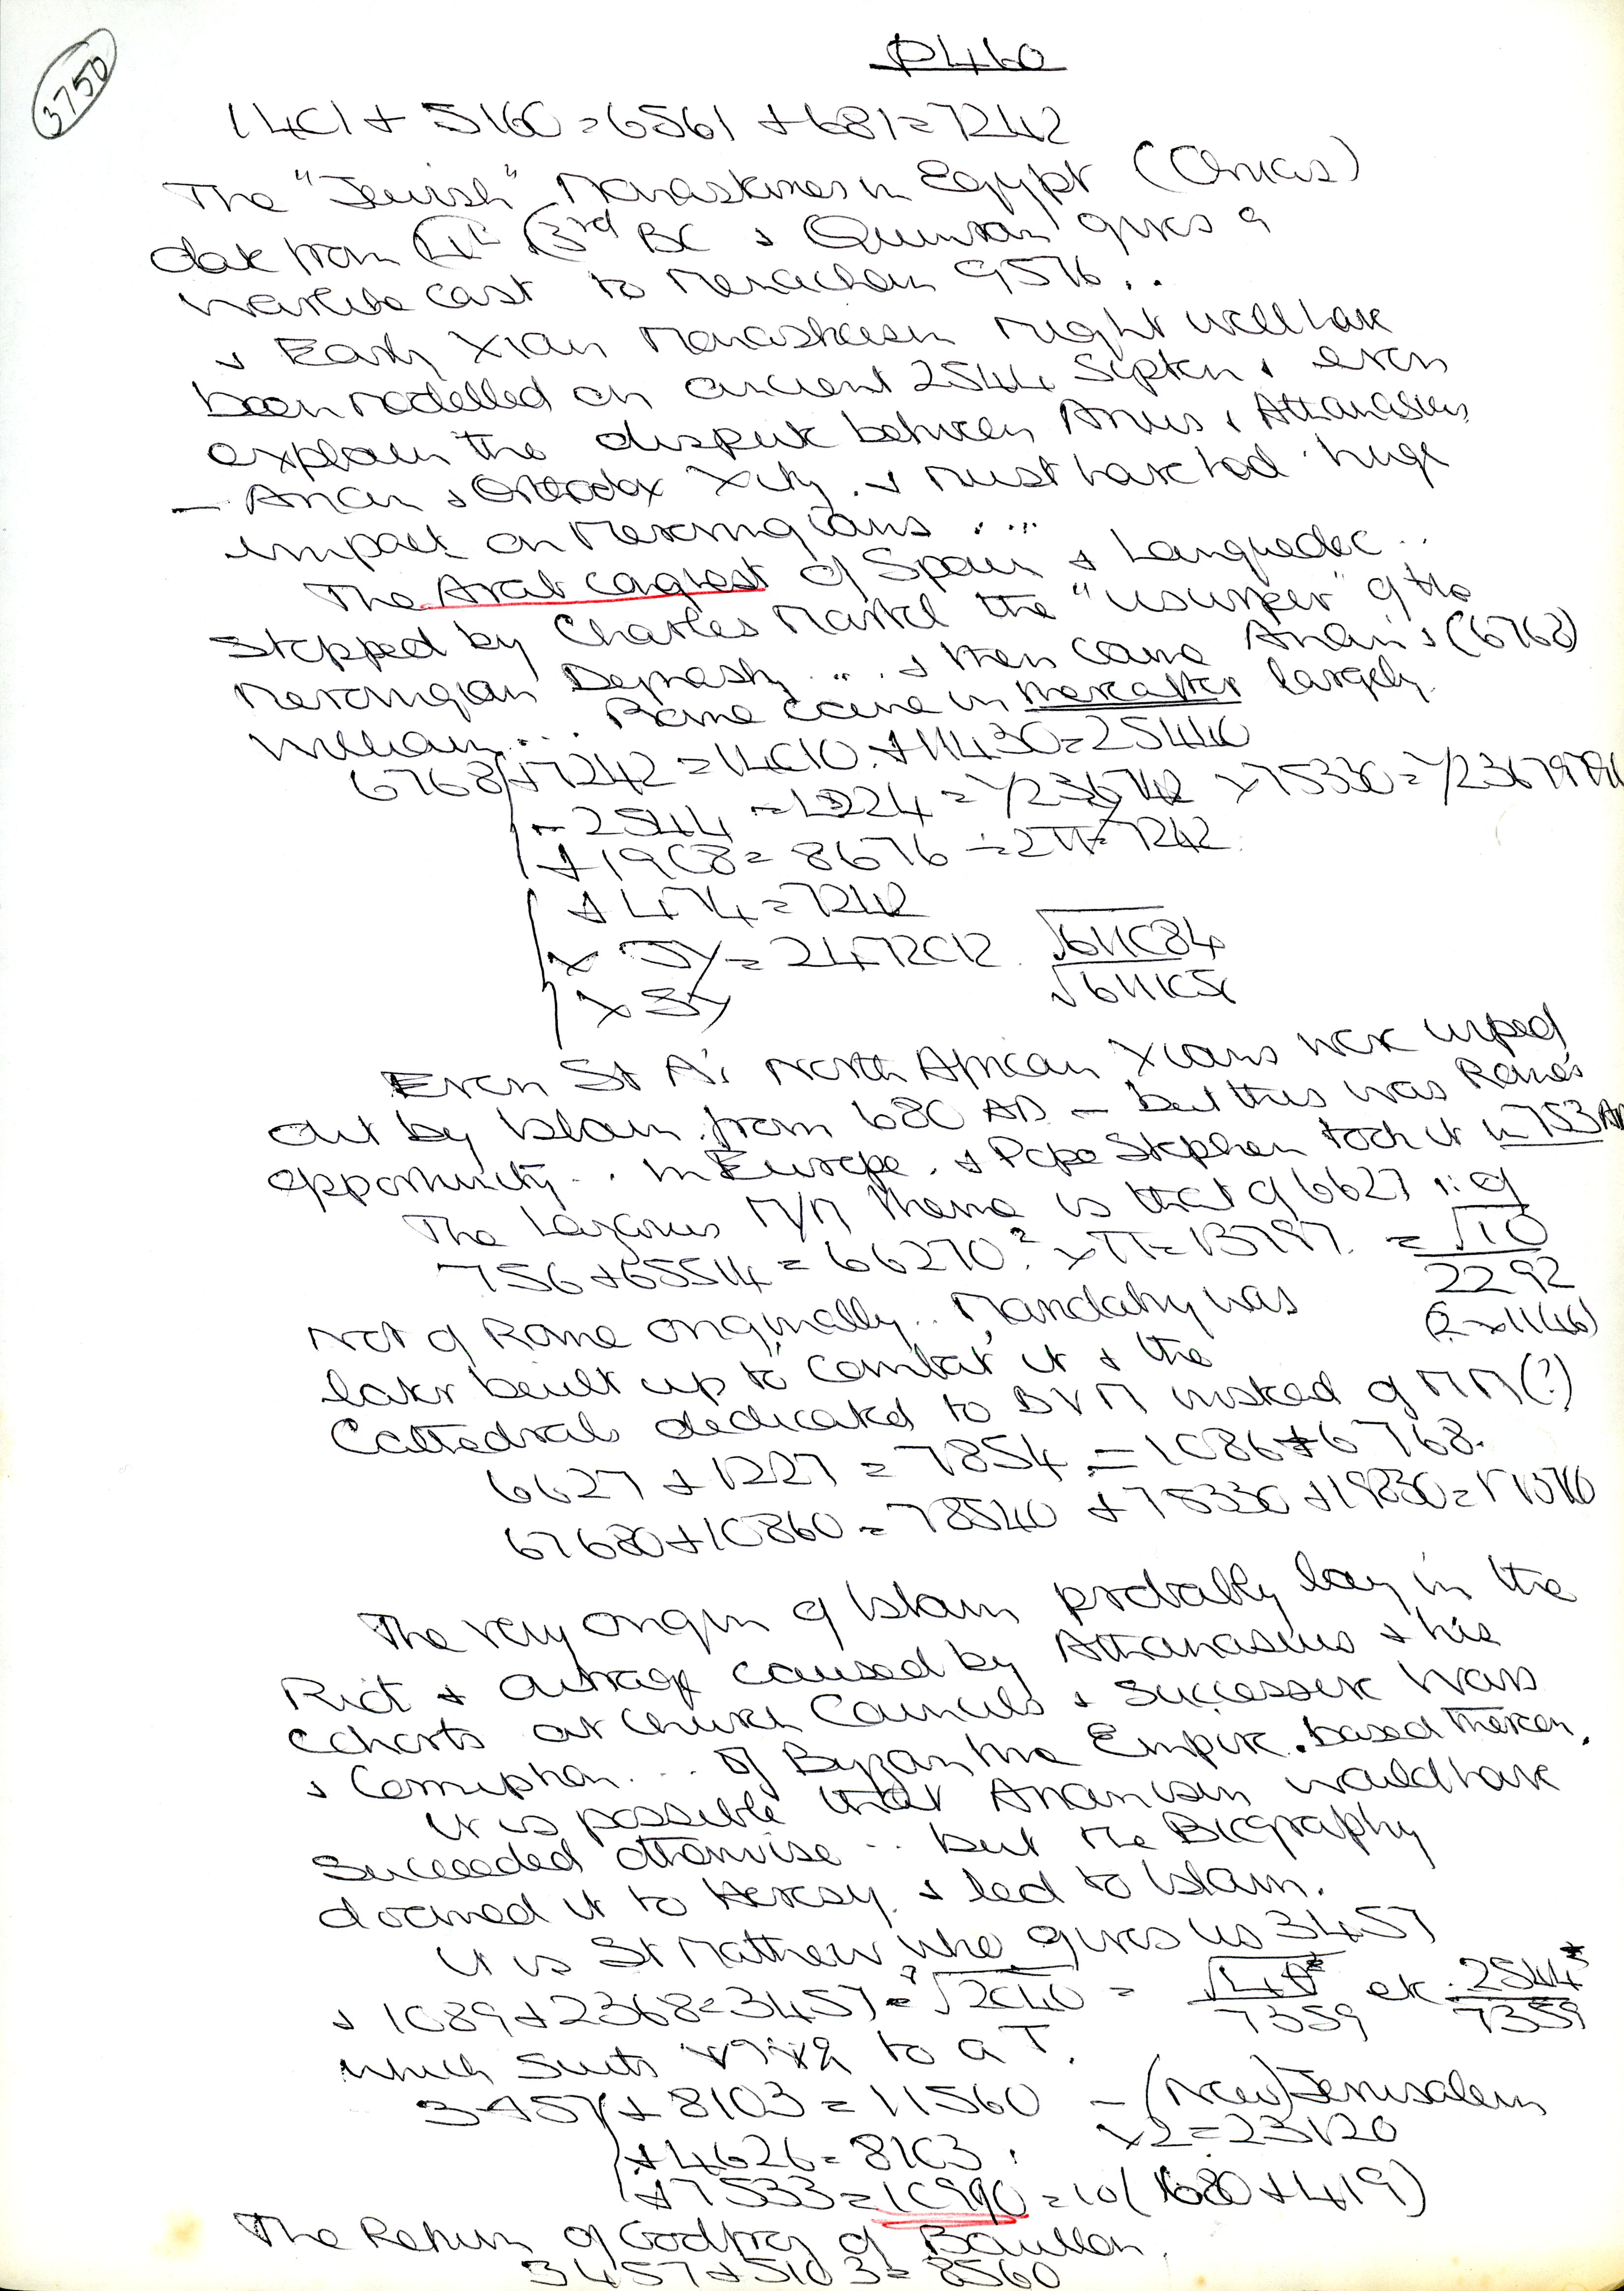 3750
P460
1401 + 5160 = 6561 + 681 = 7242
The "Jewish" Monasteries in Egypt (Onias)
date from 4th (3rd BC & Qumran gives a
warlike cast to 9576 ..
& Early Xian Monasticism might well have
been modelled on ancient 2544 & even
explain the dispute between Arius & Athanasius
— Arian & Orthodox Xity. & must have had huge
impact on Merovingians .....
The Arab conquest of Spain & Languedoc ..
stopped by Charles Martel the "usurper" of the
Merovingian Dynasty ... & then came (6768)
William ... Rome came in thereafter largely.
6768 + 7242 = 14010 + 11430 = 25440
- 2544 = 4224 = x 75330 =
+ 1908 = 8676 ÷ 2π = 7242
+ 474 = 7242
x = 2472012 √611084
x √611051
Even St A's North African Xians were wiped
out by Islam from 680 AD — but this was Rome's
opportunity .. in Europe. & Pope Stephen took it in 753 AD
The Lazarus M/M theme is that of 6627 i: of
756 + 65514 = 66270² x π = 13797 = √10
2292
(2 x 1146)
not of Rome originally .. was
later built up to "combat" it & the
Cathedrals dedicated to BVM instead of MM (?)
6627 + 1227 = 7854 = 1086 + 6768.
67680 + 10860 = 78540 + 75330 +
The very origin of Islam probably lay in the
Riot & Outrage caused by Athanasius & his
cohorts at Church Councils & Successor Wars
& Corruption ... of Byzantine Empire. based thereon.
It is possible that Arianism would have
succeeded otherwise .. but the Biography
doomed it to Heresy. & led to Islam.
It is St Matthew who gives us 3457
& 1089 + 2368 = 3457 = √2040 = 7359 etc 2544 7359
which suits to a T.
3457 + 8103 = 11560 — (New) Jerusalem
+ 4626 = 8103. x 2 = 23120
+ 7533 = 10990 = 10(680 + 419)
The Return of Godfrey of Bouillon.
3457 + 5103 = 8560